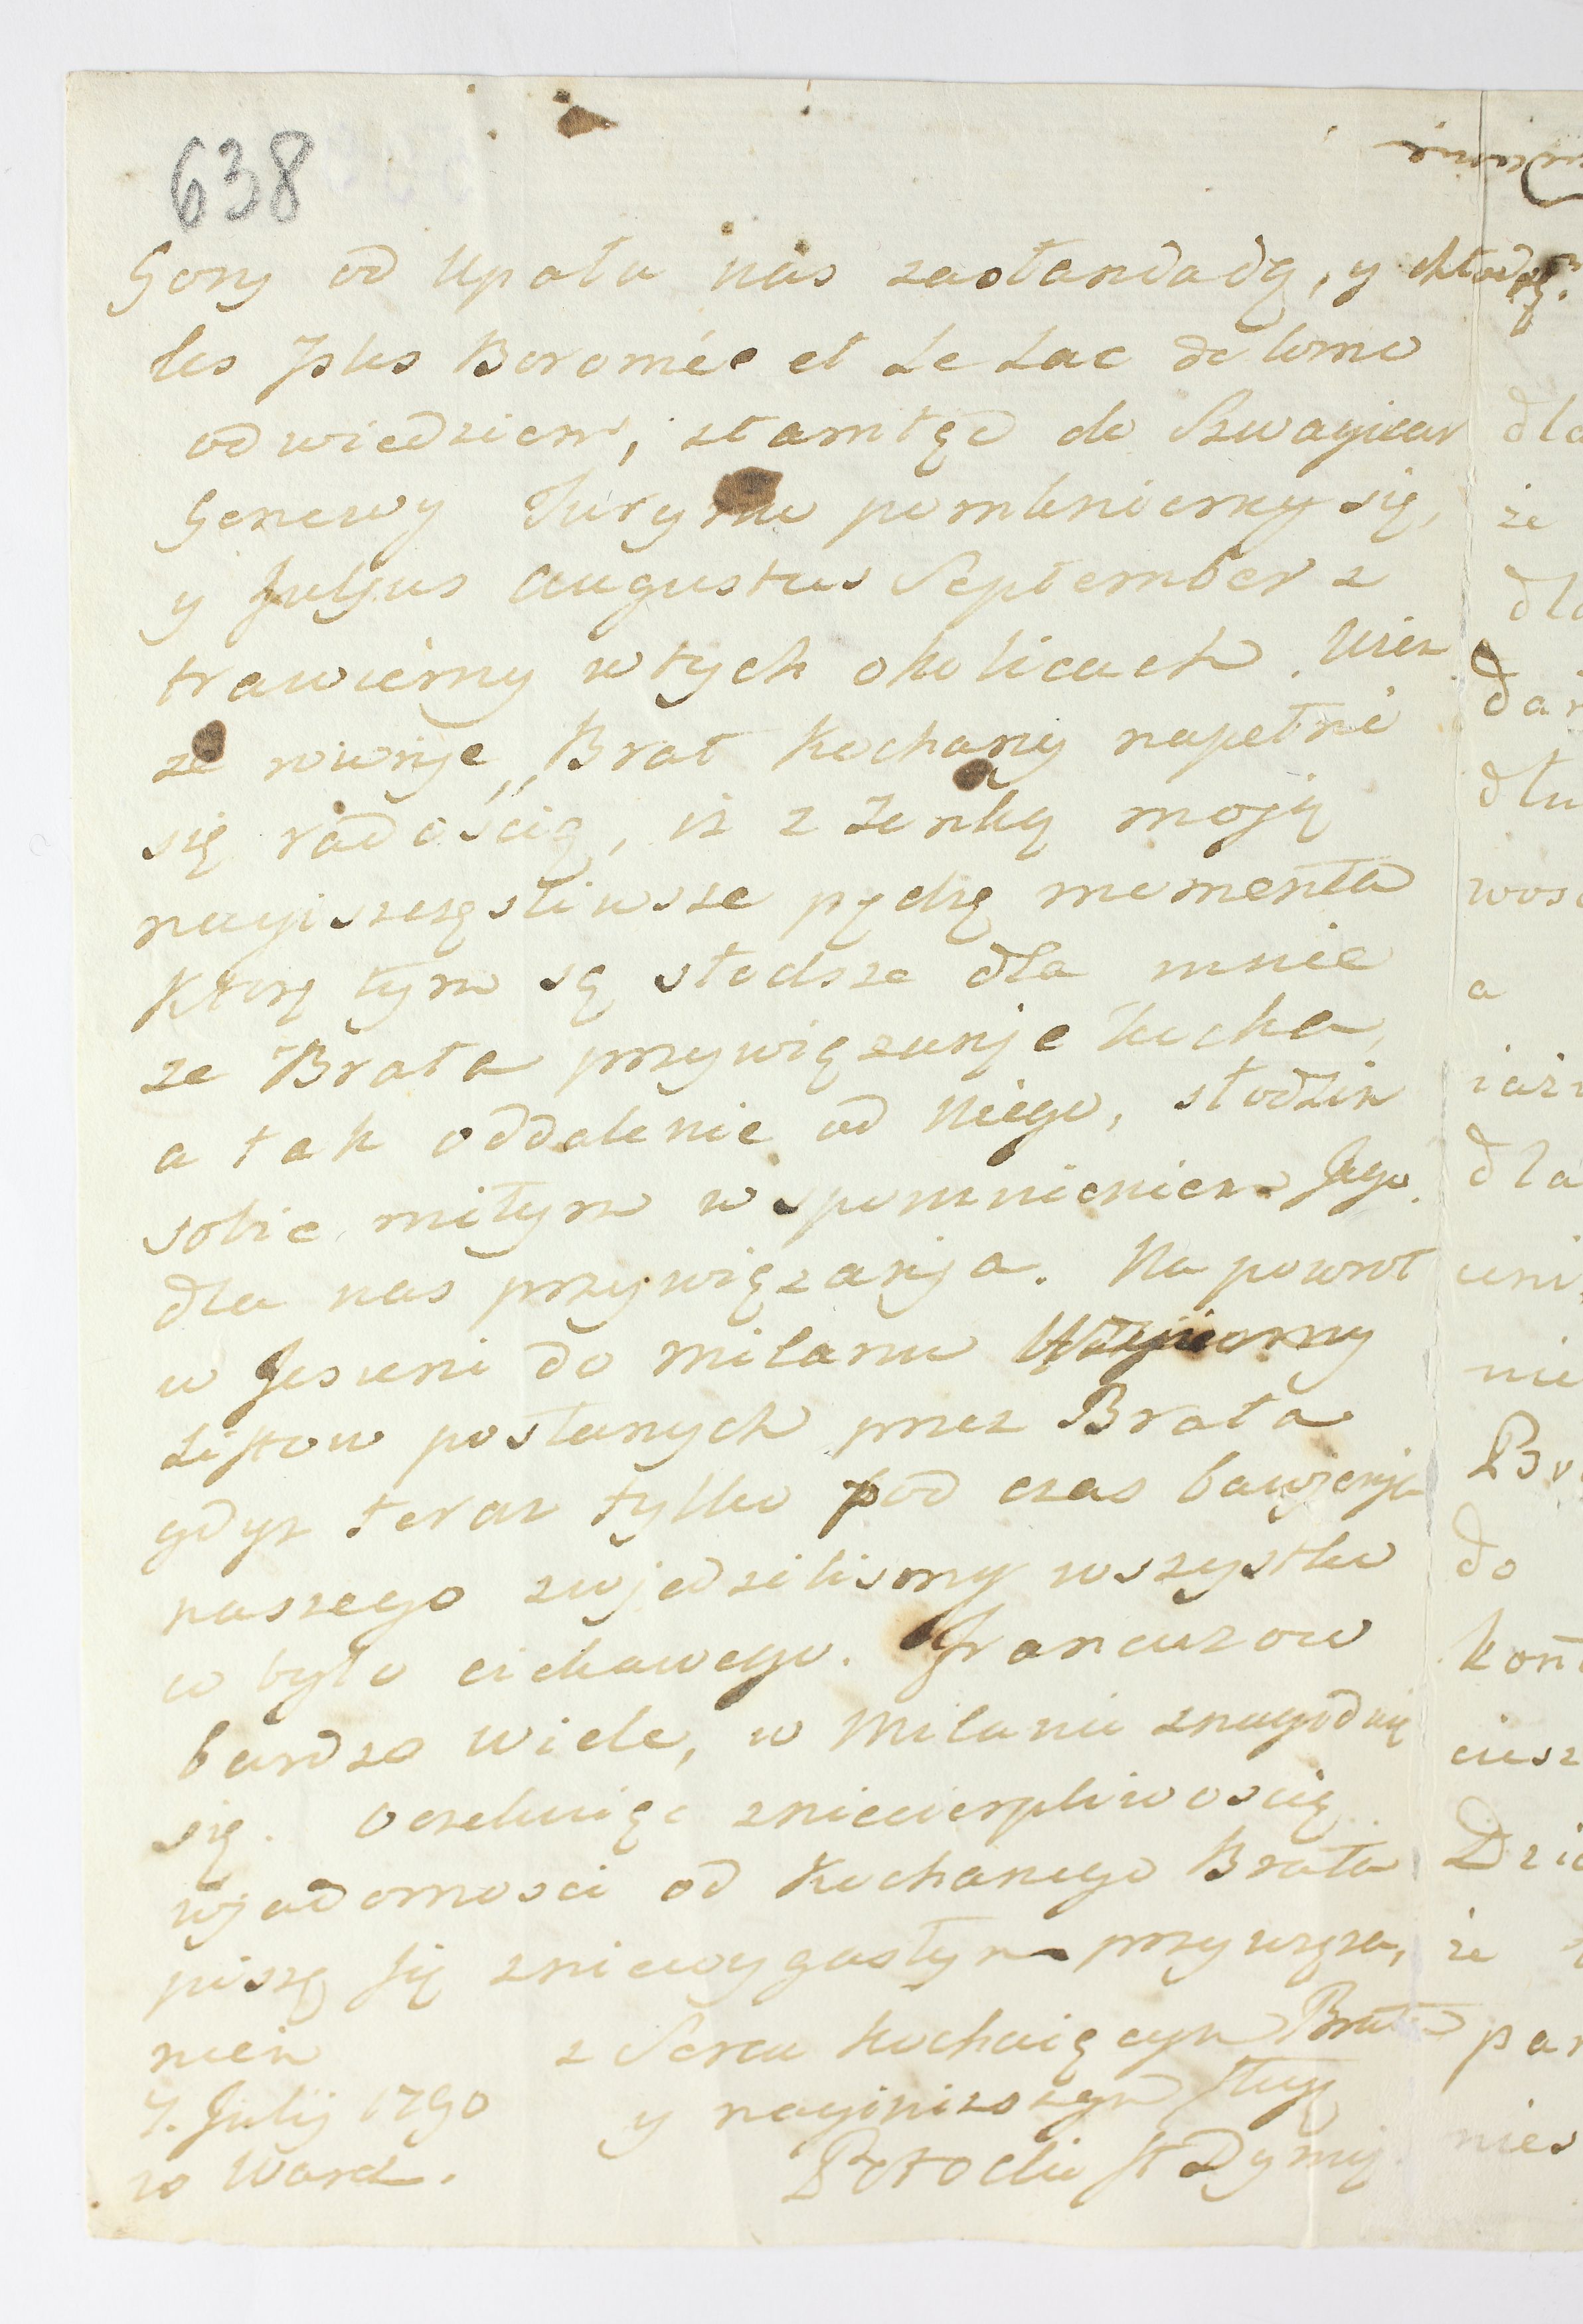 638
Gory od Upału nas zasłaniaią, y chłodzą.
les Isles Boromée et Le Lac de Como
odwiedziem, ztamtąd do Szwaycar
Genewy Turynu pomkniemy się,
y Julyus Augustus September z
trawiemy w tych okolicach. Wiem
ze rownye Brat Kochany napełni
się radością, iż z Zonką moją
nayisczęsliwsze pędzę momenta
Ktorę tym są słodsze dla mnie
ze Brata przywiązanje kocha,
a tak oddalenie od Niego, słodzim
sobie miłym wspomnieniem Jego
dla nas przywiązanja. Na powrot
w Jesieni do Milanu
Listow posłanych przez Brata
gdyz teraz tylko pod czas bawjenja
naszego zwjedzilismy wszystko
co było ciekawego. Francuzow
bardzo wiele, w Milanie znayduię
się. Oczekuiąc zniecierpliwoscią
wjadomosci od Kochanego Brata
piszę się zniewygasłym przywiąza,
niem z Serca kochaiącym Bratem
y nayiniszszym sługą
7. Julij 1790
w Warez. Potocki
dla
że
dla
dłu
a
dla
nie
do
że